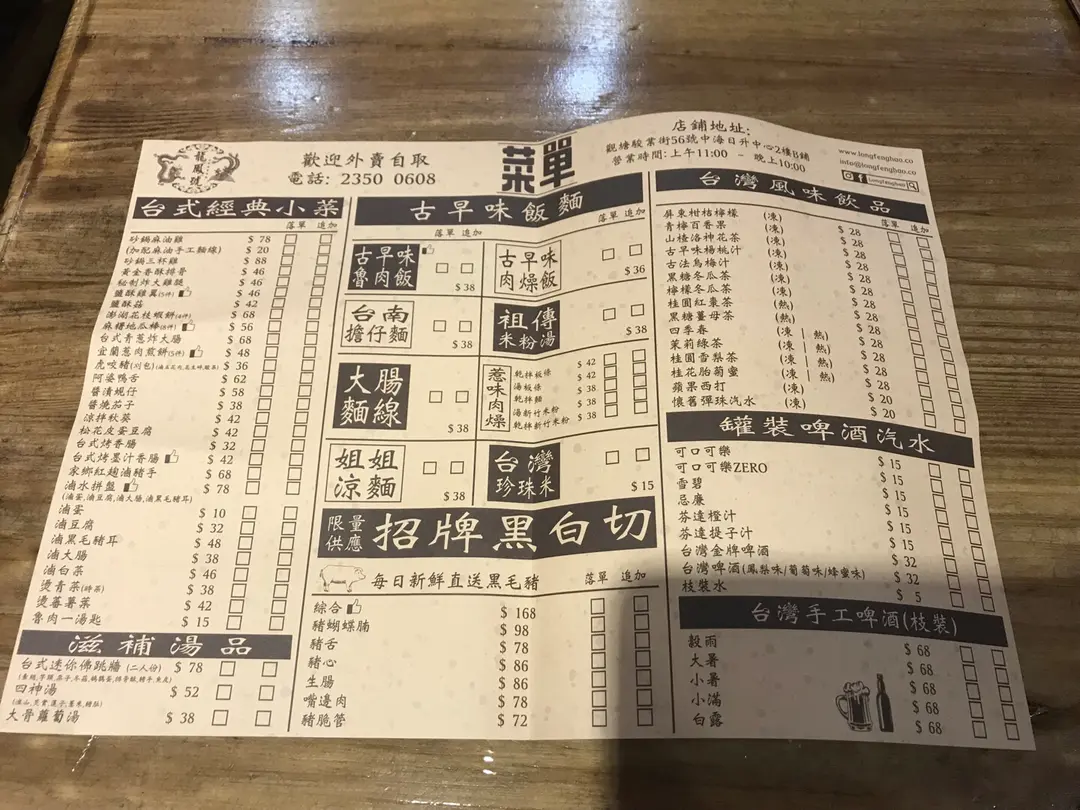 龍鳳號
歡迎外賣自取
電話: 2350 0608
菜單
店鋪地址:
觀繪駿業街56號中海日升中心2樓B鋪
營業時間:上午11:00 - 晚上10:00
www.longfenghao.co
info@longfenghao.co
longfenghao
台式經典小菜
落單 追加
砂鍋麻油雞 $ 78
(加配麻油手工麵線) $ 20
砂鍋三杯雞 $ 88
黃金香酥排骨 $ 46
秘制炸大雞腿 $ 46
鹽酥雞翼(5件) $ 46
鹽酥菇 $ 42
澎湖花枝蝦餅(4件) $ 68
麻糬地瓜棒(8件) $ 56
台式青蔥炸大腸 $ 68
宜蘭蔥肉煎餅(5件) $ 48
虎咬豬(刈包) $ 36
阿婆鴨舌 $ 62
醬漬蜆仔 $ 58
醬燒茄子 $ 38
涼拌秋葵 $ 42
松花皮蛋豆腐 $ 42
台式烤香腸 $ 32
台式烤墨汁香腸 $ 42
家鄉紅麹滷豬手 $ 68
滷水拼盤 $ 78
(滷蛋,滷豆腐,滷大腸,滷黑毛豬耳)
滷蛋 $ 10
滷豆腐 $ 32
滷黑毛豬耳 $ 48
滷大腸 $ 38
滷白菜 $ 46
燙青菜(時菜) $ 38
燙蕃薯葉 $ 42
魯肉一湯匙 $ 15
滋補湯品
台式迷你佛跳牆 (二人份) $ 78
四神湯 $ 52
大骨蘿蔔湯 $ 38
古早味飯麵
落單 追加
落單 追加
古早味
魯肉飯
$ 38
古早味
肉燥飯
$ 36
台南
擔仔麵
$ 38
祖傳
米粉湯
$ 38
大腸
麵線
$ 38
惹味肉燥
乾拌粄條 $ 42
湯粄條 $ 38
乾拌麵 $ 38
湯新竹米粉 $ 38
乾拌新竹米粉 $ 38
姐姐
涼麵
$ 38
台灣
珍珠米
$ 15
限量
供應
招牌黑白切
每日新鮮直送黑毛豬
落單 追加
綜合 $ 168
豬蝴蝶腩 $ 98
豬舌 $ 78
豬心 $ 86
生腸 $ 86
嘴邊肉 $ 78
豬脆管 $ 72
台灣風味飲品
落單 追加
屏東柑桔檸檬 (凍) $ 28
青檸百香果 (凍) $ 28
山楂洛神花茶 (凍) $ 28
古早味楊桃汁 (凍) $ 28
古法烏梅汁 (凍) $ 28
黑糖冬瓜茶 (凍) $ 28
檸檬冬瓜茶 (凍) $ 28
桂圓紅棗茶 (熱) $ 28
黑糖薑母茶 (熱) $ 28
四季春 (凍 | 熱) $ 28
茉莉綠茶 (凍 | 熱) $ 28
桂圓雪梨茶 (凍 | 熱) $ 28
桂花胎菊蜜 (凍 | 熱) $ 28
蘋果西打 (凍) $ 20
懷舊彈珠汽水 (凍) $ 20
罐裝啤酒汽水
可口可樂 $ 15
可口可樂ZERO $ 15
雪碧 $ 15
忌廉 $ 15
芬達橙汁 $ 15
芬達提子汁 $ 15
台灣金牌啤酒 $ 32
台灣啤酒(鳳梨味/葡萄味/蜂蜜味) $ 32
枝裝水 $ 5
台灣手工啤酒(枝裝)
穀雨 $ 68
大暑 $ 68
小暑 $ 68
小滿 $ 68
白露 $ 68